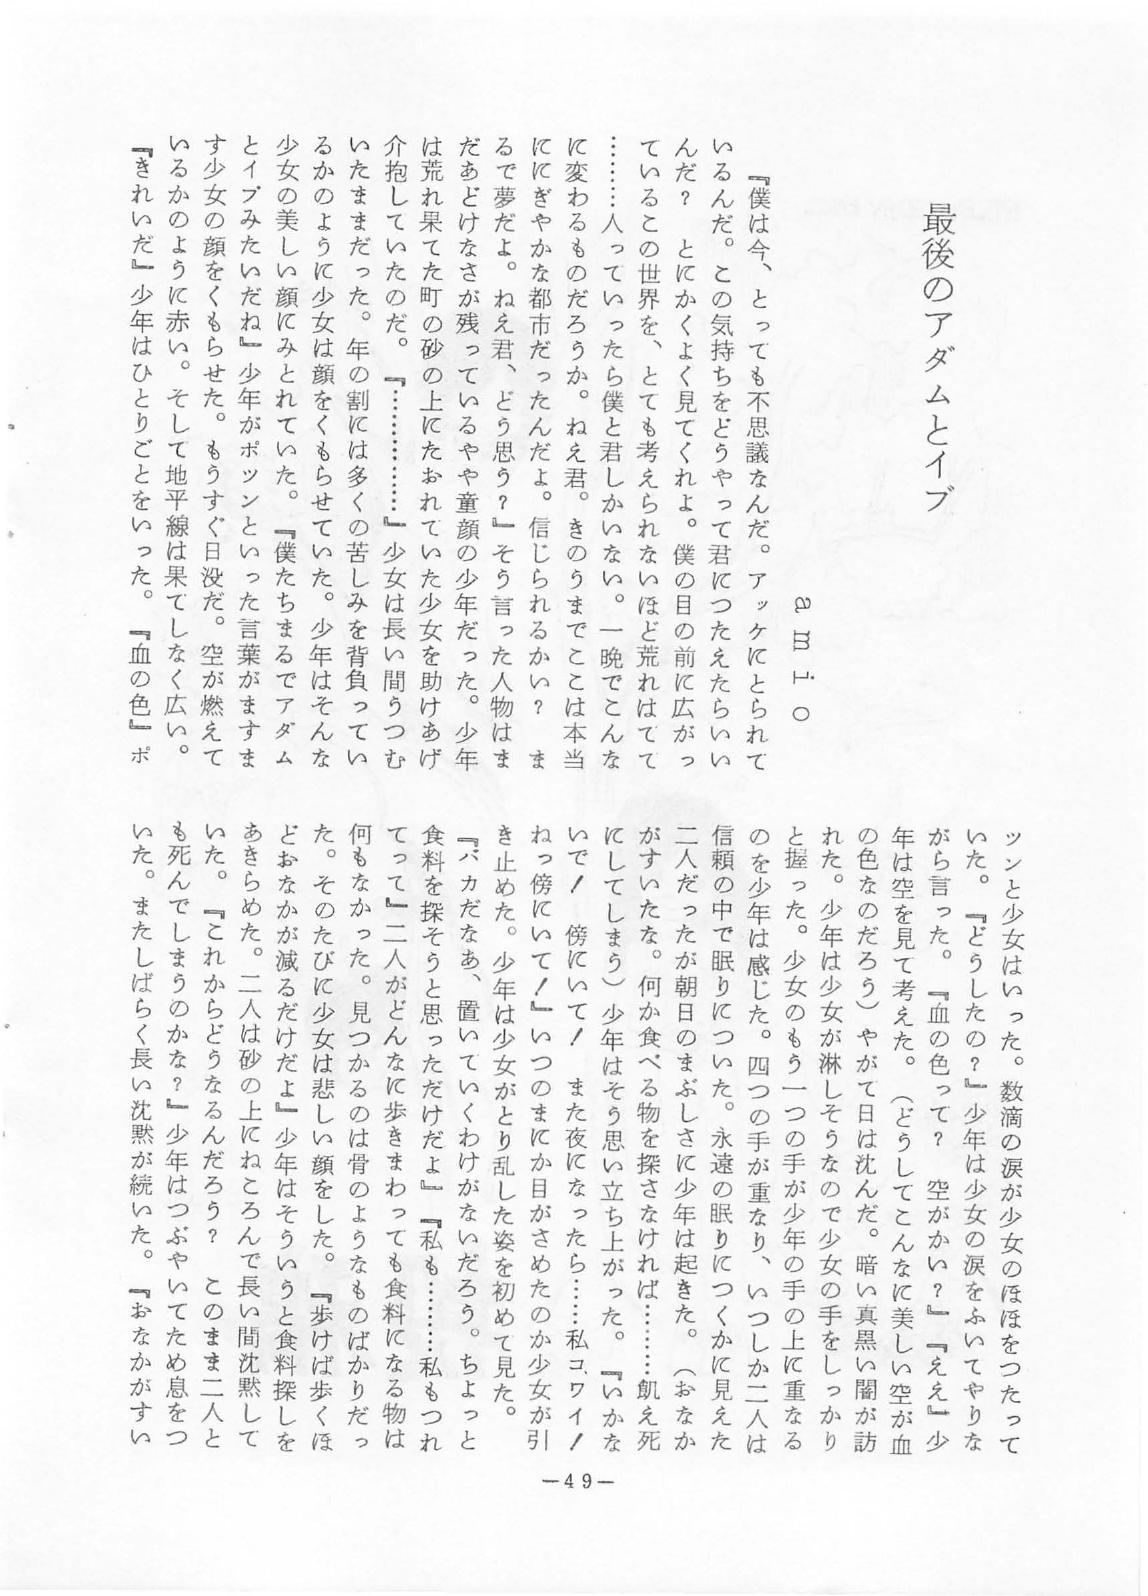 最後のアダムとイブ
amio
『僕は今、とっても不思議なんだ。アッケにとられて
いるんだ。この気持ちをどうやって君につたえたらいい
んだ?　とにかくよく見てくれよ。僕の目の前に広がっ
ているこの世界を、とても考えられないほど荒れはてて
………人っていったら僕と君しかいない。一晩でこんな
に変わるものだろうか。ねえ君。きのうまでここは本当
ににぎやかな都市だったんだよ。信じられるかい?　ま
るで夢だよ。ねえ君、どう思う?』そう言った人物はま
だあどけなさが残っているやや童顔の少年だった。少年
は荒れ果てた町の砂の上にたおれていた少女を助けあげ
介抱していたのだ。『……………』少女は長い間うつむ
いたままだった。年の割には多くの苦しみを背負ってい
るかのように少女は顔をくもらせていた。少年はそんな
少女の美しい顔にみとれていた。『僕たちまるでアダム
とイブみたいだね』少年がポツンといった言葉がますま
す少女の顔をくもらせた。もうすぐ日没だ。空が燃えて
いるかのように赤い。そして地平線は果てしなく広い。
『きれいだ』少年はひとりごとをいった。『血の色』ポ
ツンと少女はいった。数滴の涙が少女のほほをつたって
いた。『どうしたの?』少年は少女の涙をふいてやりな
がら言った。『血の色って?　空がかい?』『ええ』少
年は空を見て考えた。（どうしてこんなに美しい空が血
の色なのだろう）やがて日は沈んだ。暗い真黒い闇が訪
れた。少年は少女が淋しそうなので少女の手をしっかり
と握った。少女のもう一つの手が少年の手の上に重なる
のを少年は感じた。四つの手が重なり、いつしか二人は
信頼の中で眠りについた。永遠の眠りにつくかに見えた
二人だったが朝日のまぶしさに少年は起きた。（おなか
がすいたな。何か食べる物を探さなければ………飢え死
にしてしまう）少年はそう思い立ち上がった。『いかな
いで!　傍にいて!　また夜になったら……私コワイ!
ねっ傍にいて!』いつのまにか目がさめたのか少女が引
き止めた。少年は少女がとり乱した姿を初めて見た。
『バカだなあ、置いていくわけがないだろう。ちょっと
食料を探そうと思っただけだよ』『私も………私もつれ
てって』二人がどんなに歩きまわっても食料になる物は
何もなかった。見つかるのは骨のようなものばかりだっ
た。そのたびに少女は悲しい顔をした。『歩けば歩くほ
どおなかが減るだけだよ』少年はそういうと食料探しを
あきらめた。二人は砂の上にねころんで長い間沈黙して
いた。『これからどうなるんだろう?　このまま二人と
も死んでしまうのかな?』少年はつぶやいてため息をつ
いた。またしばらく長い沈黙が続いた。『おなかがすい
—49—